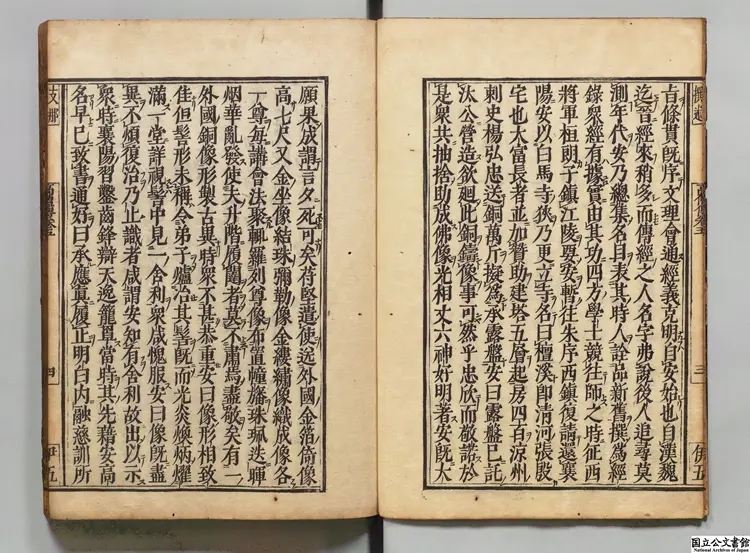 撰述
三
伊五
旨條貫既序文理會通經義克明自安始也自漢魏
迄晉經來稍多而傳經之人名字弗說後人追尋莫
測年代安乃總集名目表其時人詮品新舊撰爲經
錄衆經有據實由其功四方學士競往師之時征西
將軍桓朗子鎮江陵要安暫往朱序西鎮復請還襄
陽安以白馬寺狹乃更立寺名曰檀溪即清河張殷
宅也大富長者並加贊助建塔五層起房四百涼州
刺史楊弘忠送銅萬斤擬爲承露盤安曰露盤已託
汰公營造欲迴此銅鑄像事可然乎忠欣而敬諾於
是衆共抽捨助成佛像光相丈六神好明著安既大
願果成謂言夕死可矣苻堅遣使送外國金箔倚像
高七尺又金坐像結珠彌勒像金縷繡像織成像各
一尊每講會法聚輒羅列尊像布置幢旛珠珮迭暉
烟華亂發使夫升階履闥者莫不肅焉盡敬矣有一
外國銅像形製古異時衆不甚恭重安曰像形相致
佳但髻形未稱令弟子爐冶其髻既而光炎煥炳燿
滿一堂詳視髻中見一舍利衆咸愧服安曰像既靈
異不煩復治乃止識者咸謂安知有舍利故出以示
衆時襄陽習鑿齒鋒辯天逸籠罩當時其先藉安高
名早已致書通好曰承應真履正明白内融慈訓所
支那
四
伊五
国立公文書館
National Archives of Japan